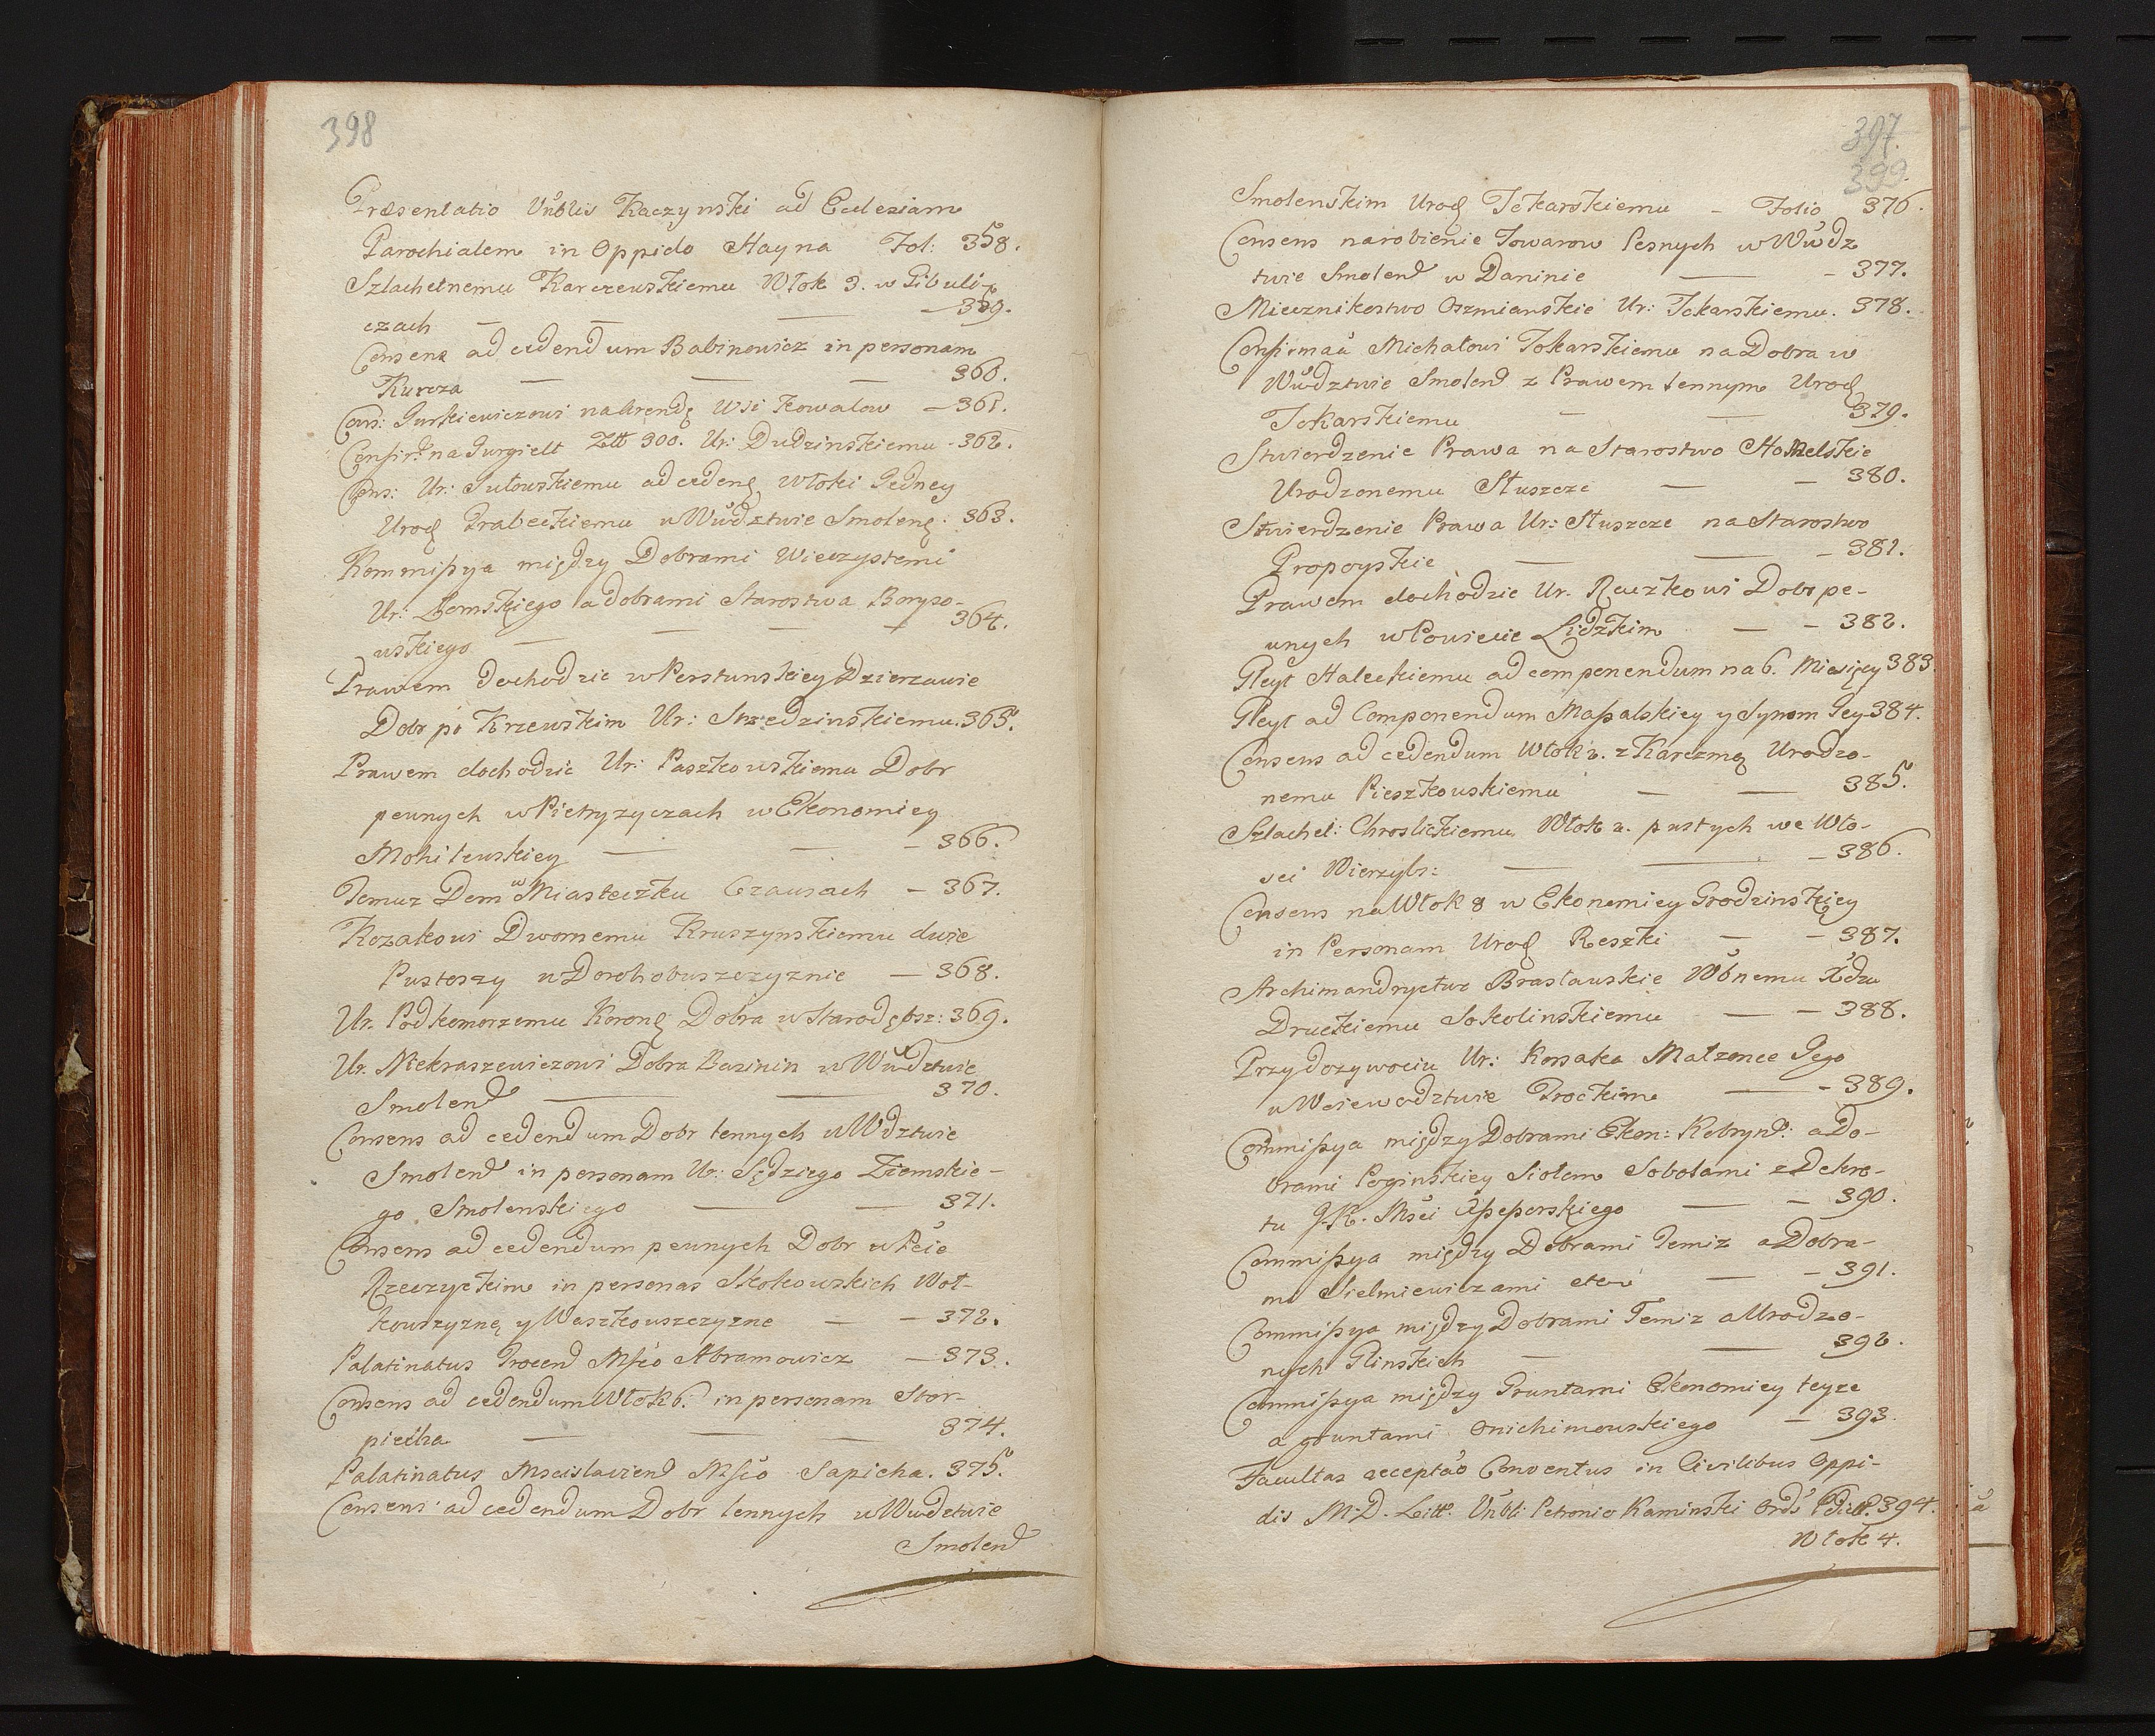 398
Præsentatio Vnblis Kaczynski ad Eccleziam
Parochialem in Oppido Hayna Fol: 358.
Szlachetnemu Karczewskiemu Włok 3. w Pibuli-
czach — — — 359.
Consens ad cedendum Babinowicz in personam
Kurcza — — — 360.
Cons: Gurkiewiczowi na Arendę Wsi Kowalow — 361.
Confir. na Jurgielt Złł 300. Ur: Dudzinskiemu - 362.
Cons: Ur: Sutowskiemu ad cedend Włoki Jedney
Urod Grabeckiemu w Wudztwie Smolen: 363.
Kommissya między Dobrami Wieczystemi
Ur: Zemskiego a dobrami Starostwa Boryso-
wskiego — — — — 364.
Prawem dochodzic w Perstunskiey Dzierzawie
Dobr po Krzewskim Ur: Strzedzinskiemu. 365.
Prawem dochodzic Ur: Paszkowskiemu Dobr
pewnych w Pietryzyczach w Ekonomiey
Mohilewskiey — — — 366.
Temuz Dom w Miasteczku Czausach — 367.
Kozakowi Dwornemu Kruszynskiemu dwie
Pustoszy w Dorohobuszczyznie — 368.
Ur. Podkomorzemu Koronę Dobra w Starodębsz: 369.
Ur. Niekraszewiczowi Dobra Bazinin w Wudztwie
Smolend — — 370.
Consens ad cedendum Dobr lennych w Wdztwie
Smolend in personam Ur: Sędziego Ziemskie-
go Smolenskiego — — 371.
Consens ad cedendum pewnych Dobr w Pcie
Rzeczyckim in personas Skokowskich Woł-
kowszyznę y Waszkowszczyzne — — 372.
Palatinatus Trocend Msco Abramowicz — 373.
Consens ad cedendum Włok 6. in personam Stor-
piecka — — — 374.
Palatinatus Mscislaviend Msco Sapieha. 375.
Consens ad cedendum Dobr lennych w Wudztwie
Smolend
397.
399.
Smolenskim Urod Tokarskiemu — Folio 376.
Consens na robienie Towarow lesnych w Wudz
twie Smolend w Daninie — — 377.
Miecznikostwo Oszmianskie Ur: Tokarskiemu. 378.
Confirmaō Michałowi Tokarskiemu na Dobra w
Wudztwie Smolend z Prawem lennym Urod
Tokarskiemu — — 379.
Stwierdzenie Prawa na Starostwo Homelskie
Urodzonemu Słuszcze — — 380.
Stwierdzenie Prawa Ur: Słuszcze na Starostwo
Propoyskie — — — 381.
Prawem dochodzic Ur. Raczkowi Dobr pe-
wnych w Powiecie Lidzkim — — 382.
Gleyt Haleckiemu ad componendum na 6. Miesięcy 383.
Gleyt ad Componendum Massalskiey y Synom Jey 384.
Consens ad cedendum Włok 2. z Karczmą Urodzo-
nemu Pieszkowskiemu — — 385.
Szlachet: Chroslickiemu Włok 2. pustych we Wło-
sci Wierzyb: — — — 386.
Consens na Włok 8 w Ekonomiey Grodzinskiey
in Personam Urod Reszki — — 387.
Archimandryctwo Brasławskie Wbnemu Xdzu
Druckiemu Sokolinskiemu — — 388.
Przy dozywociu Ur: Korsaka Małzonce Jego
w Woiewodztwie Trockim — — 389.
Commissya między Dobrami Ekon: Kobryn: a Do-
brami Poginskiey Siołem Sobolami z Dekre-
tu J.K. Msci Assessorskiego — — 390.
Commissya między Dobrami Temiz a Dobra-
mi Sielmiewiczami etc — — 391.
Commissya między Dobrami Temiz a Urodzo-
nych Glinskich — — 392.
Commissya między Gruntami Ekonomiey teyze
a gruntami Onichimowskiego — 393.
Facultas receptaō Conventus in Civilibus Oppi-
dis M.D. Litt. Vnbli Petronio Kaminski 394.
Włok 4.